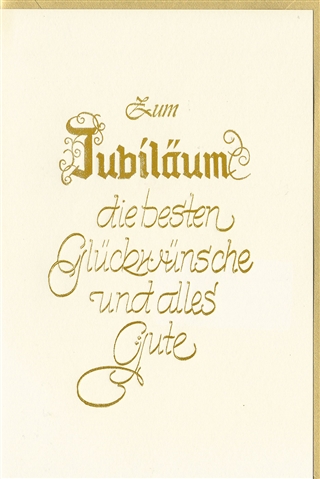 Zum
Jubiläum
die besten
Glückwünsche
und alles
Gute